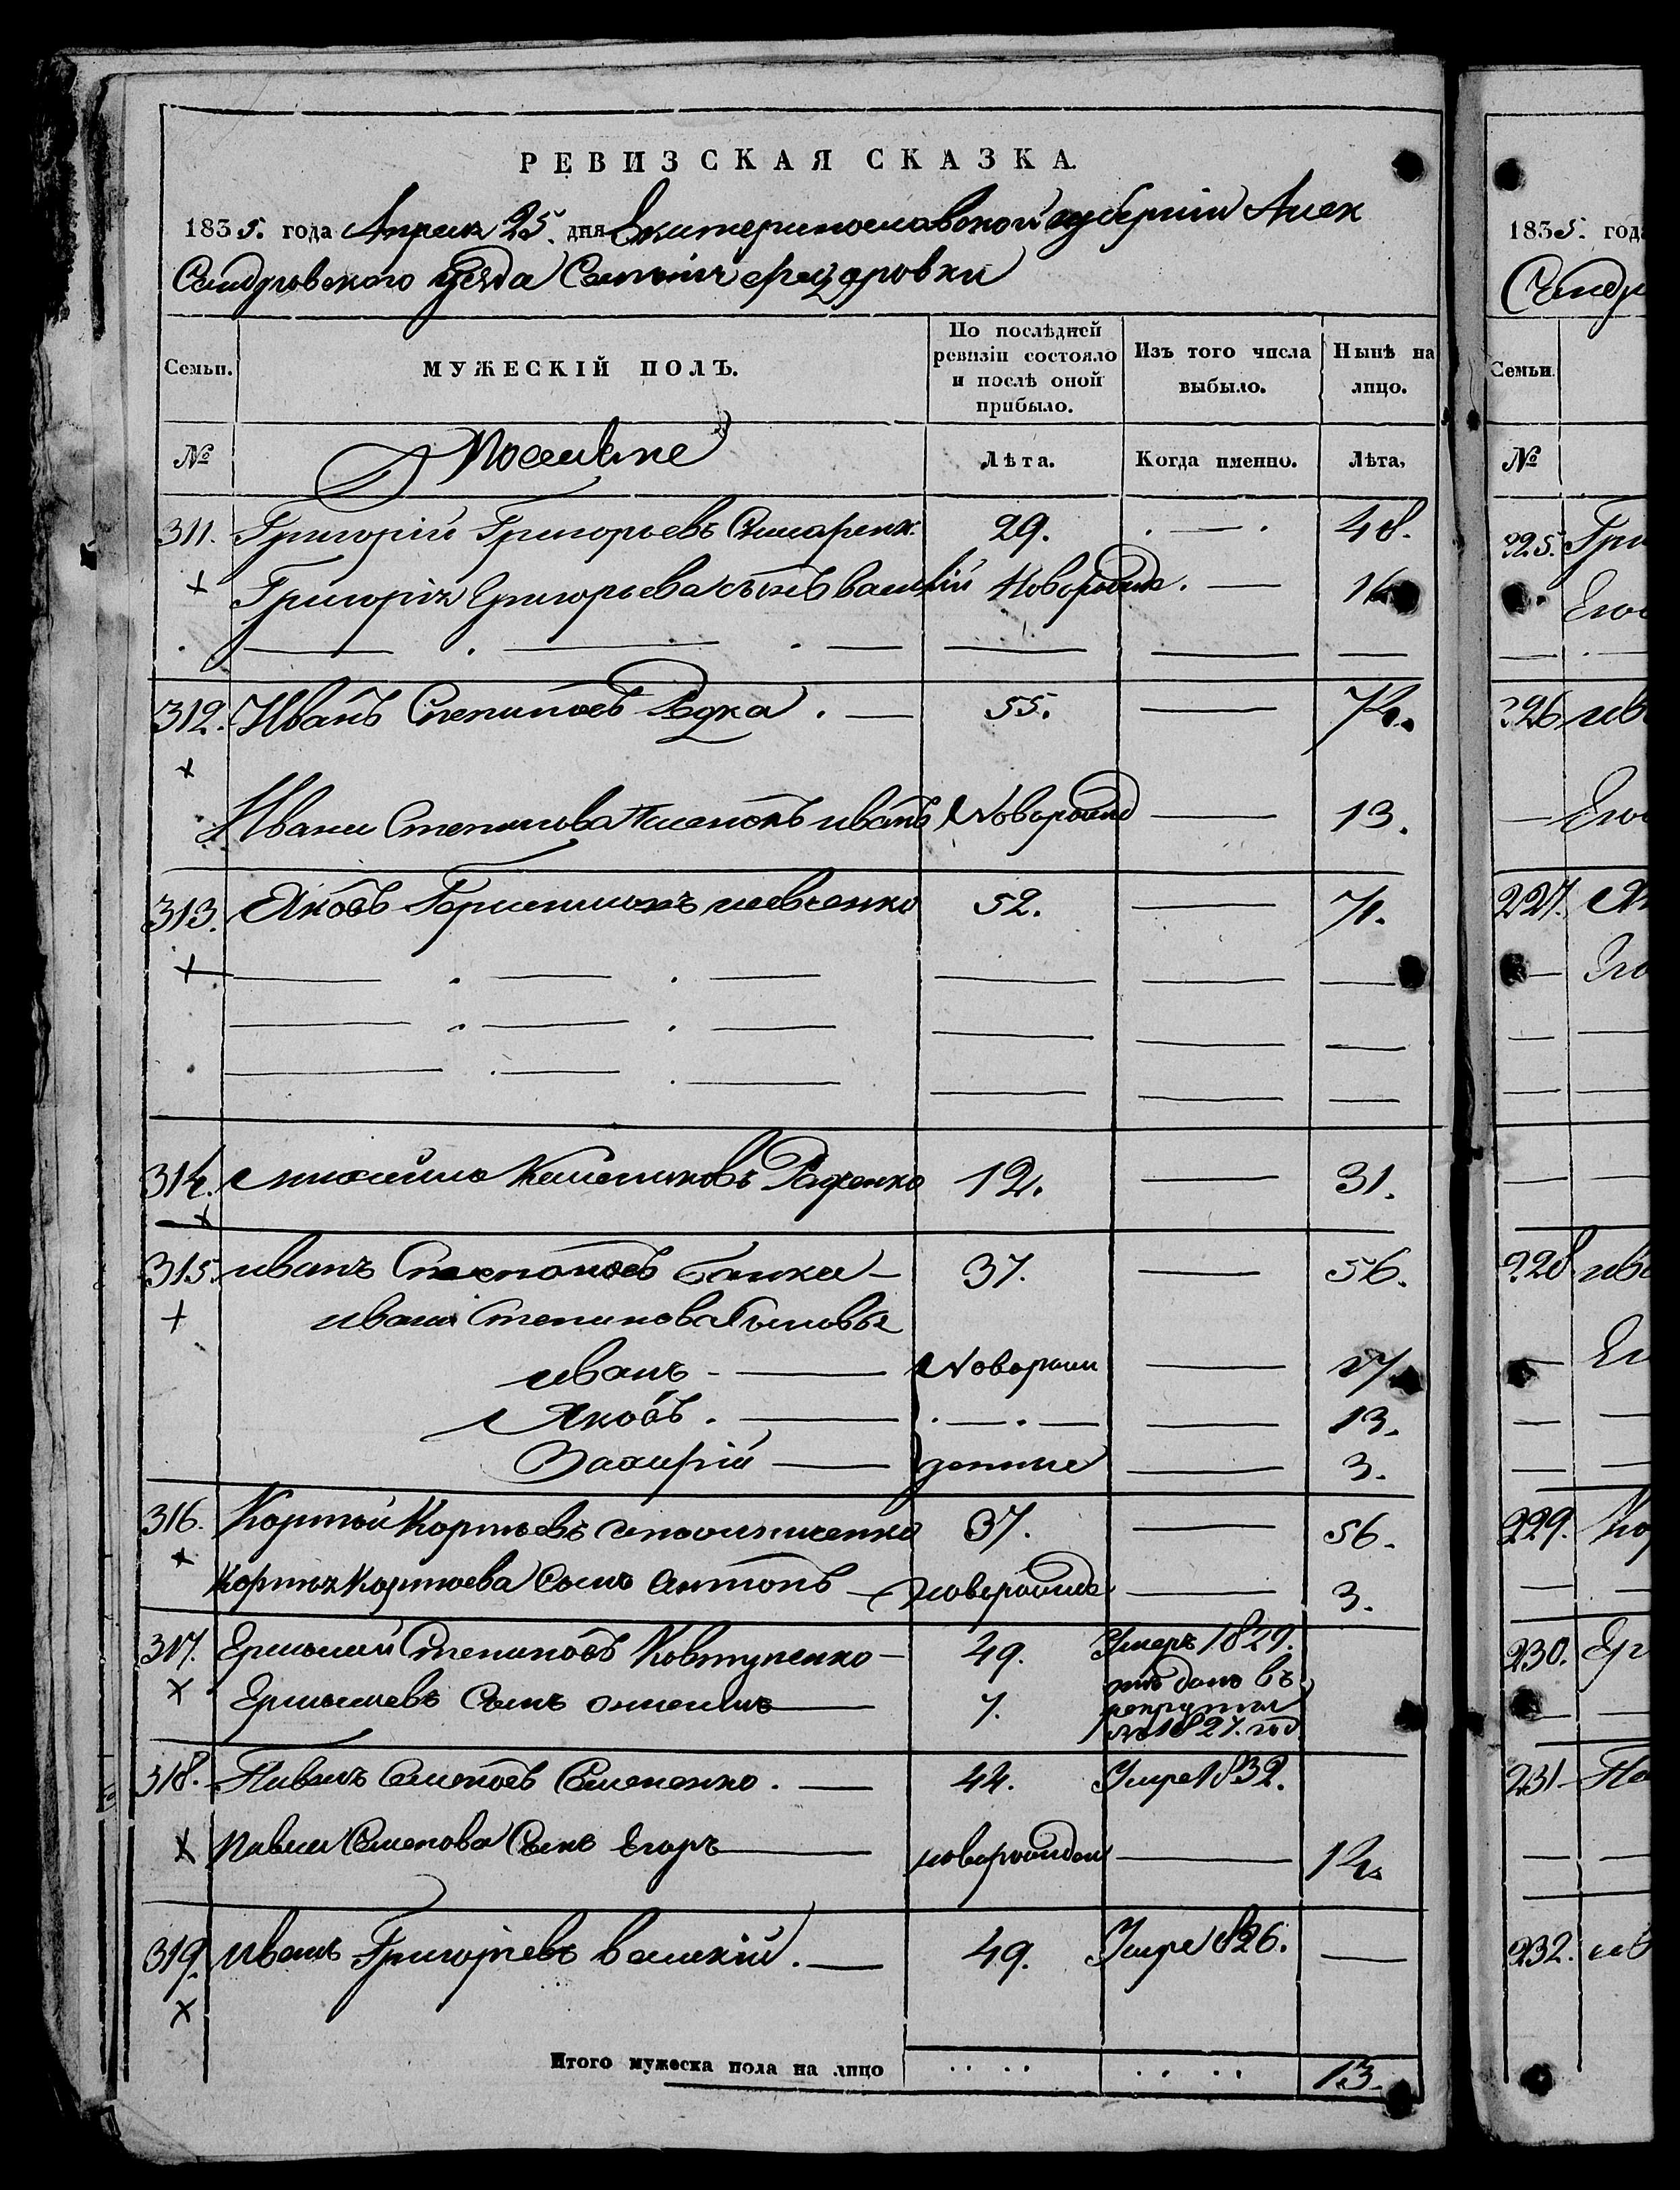 РЕВИЗСКАЯ СКАЗКА.
1835. года Апреля 25. дня Екатеринославской губернiи Алек
Сандровского уезда Селенiя Федоровки
Семьи. МУЖЕСКIЙ ПОЛЪ. По послѣдней ревизiи состояло и послѣ оной прибыло. Изъ того числа выбыло. Нынѣ на лицо.
№ Лѣта. Когда именно. Лѣта,
311. Григорiй Григорьевъ 29. . — . 48.
+ Григорiя Григорьева сынъ василiй Новорожде. — 16
312. Иванъ Степановъ Редка . — 55. — 74.
+
Ивана Степанова иванъ Новорожд — 13.
313. Яковъ шевченко 52. — 71.
+
314. 12. — 31.
+
315. иванъ Степановъ — 37. — 56.
+ ивана Степанова Сыновья
иванъ - — Новорож — 17.
Яковъ . — . — . — — 13.
Захарiй — денные — 3.
316. Корней Корнѣевъ 37. — 56.
+ Корнѣя Корнѣева Сынъ Антонъ — новорожде — 3.
317. Ермолай Степановъ Ковтуненко — 49. Умеръ 1829.
+ Ермолаевъ Сынъ — 7. отъданъ въ
рекруты
1827. год
318. Павелъ Семеновъ Семененко . — 44. Умре 1832.
+ Павла Семенова Сынъ Егоръ — новорожден — 14.
319. иванъ Григорiевъ великiй . — 49. Умре 1826. —
+
Итого мужеска пола на лицо . . . . . . . . 13.
1835. года
Сандр
Семьи.
№
325. Гри
Его
326 ива
Его
227. Як
Его
228 ива
Ег
229. Ко
230. Ер
231. Па
232. ив